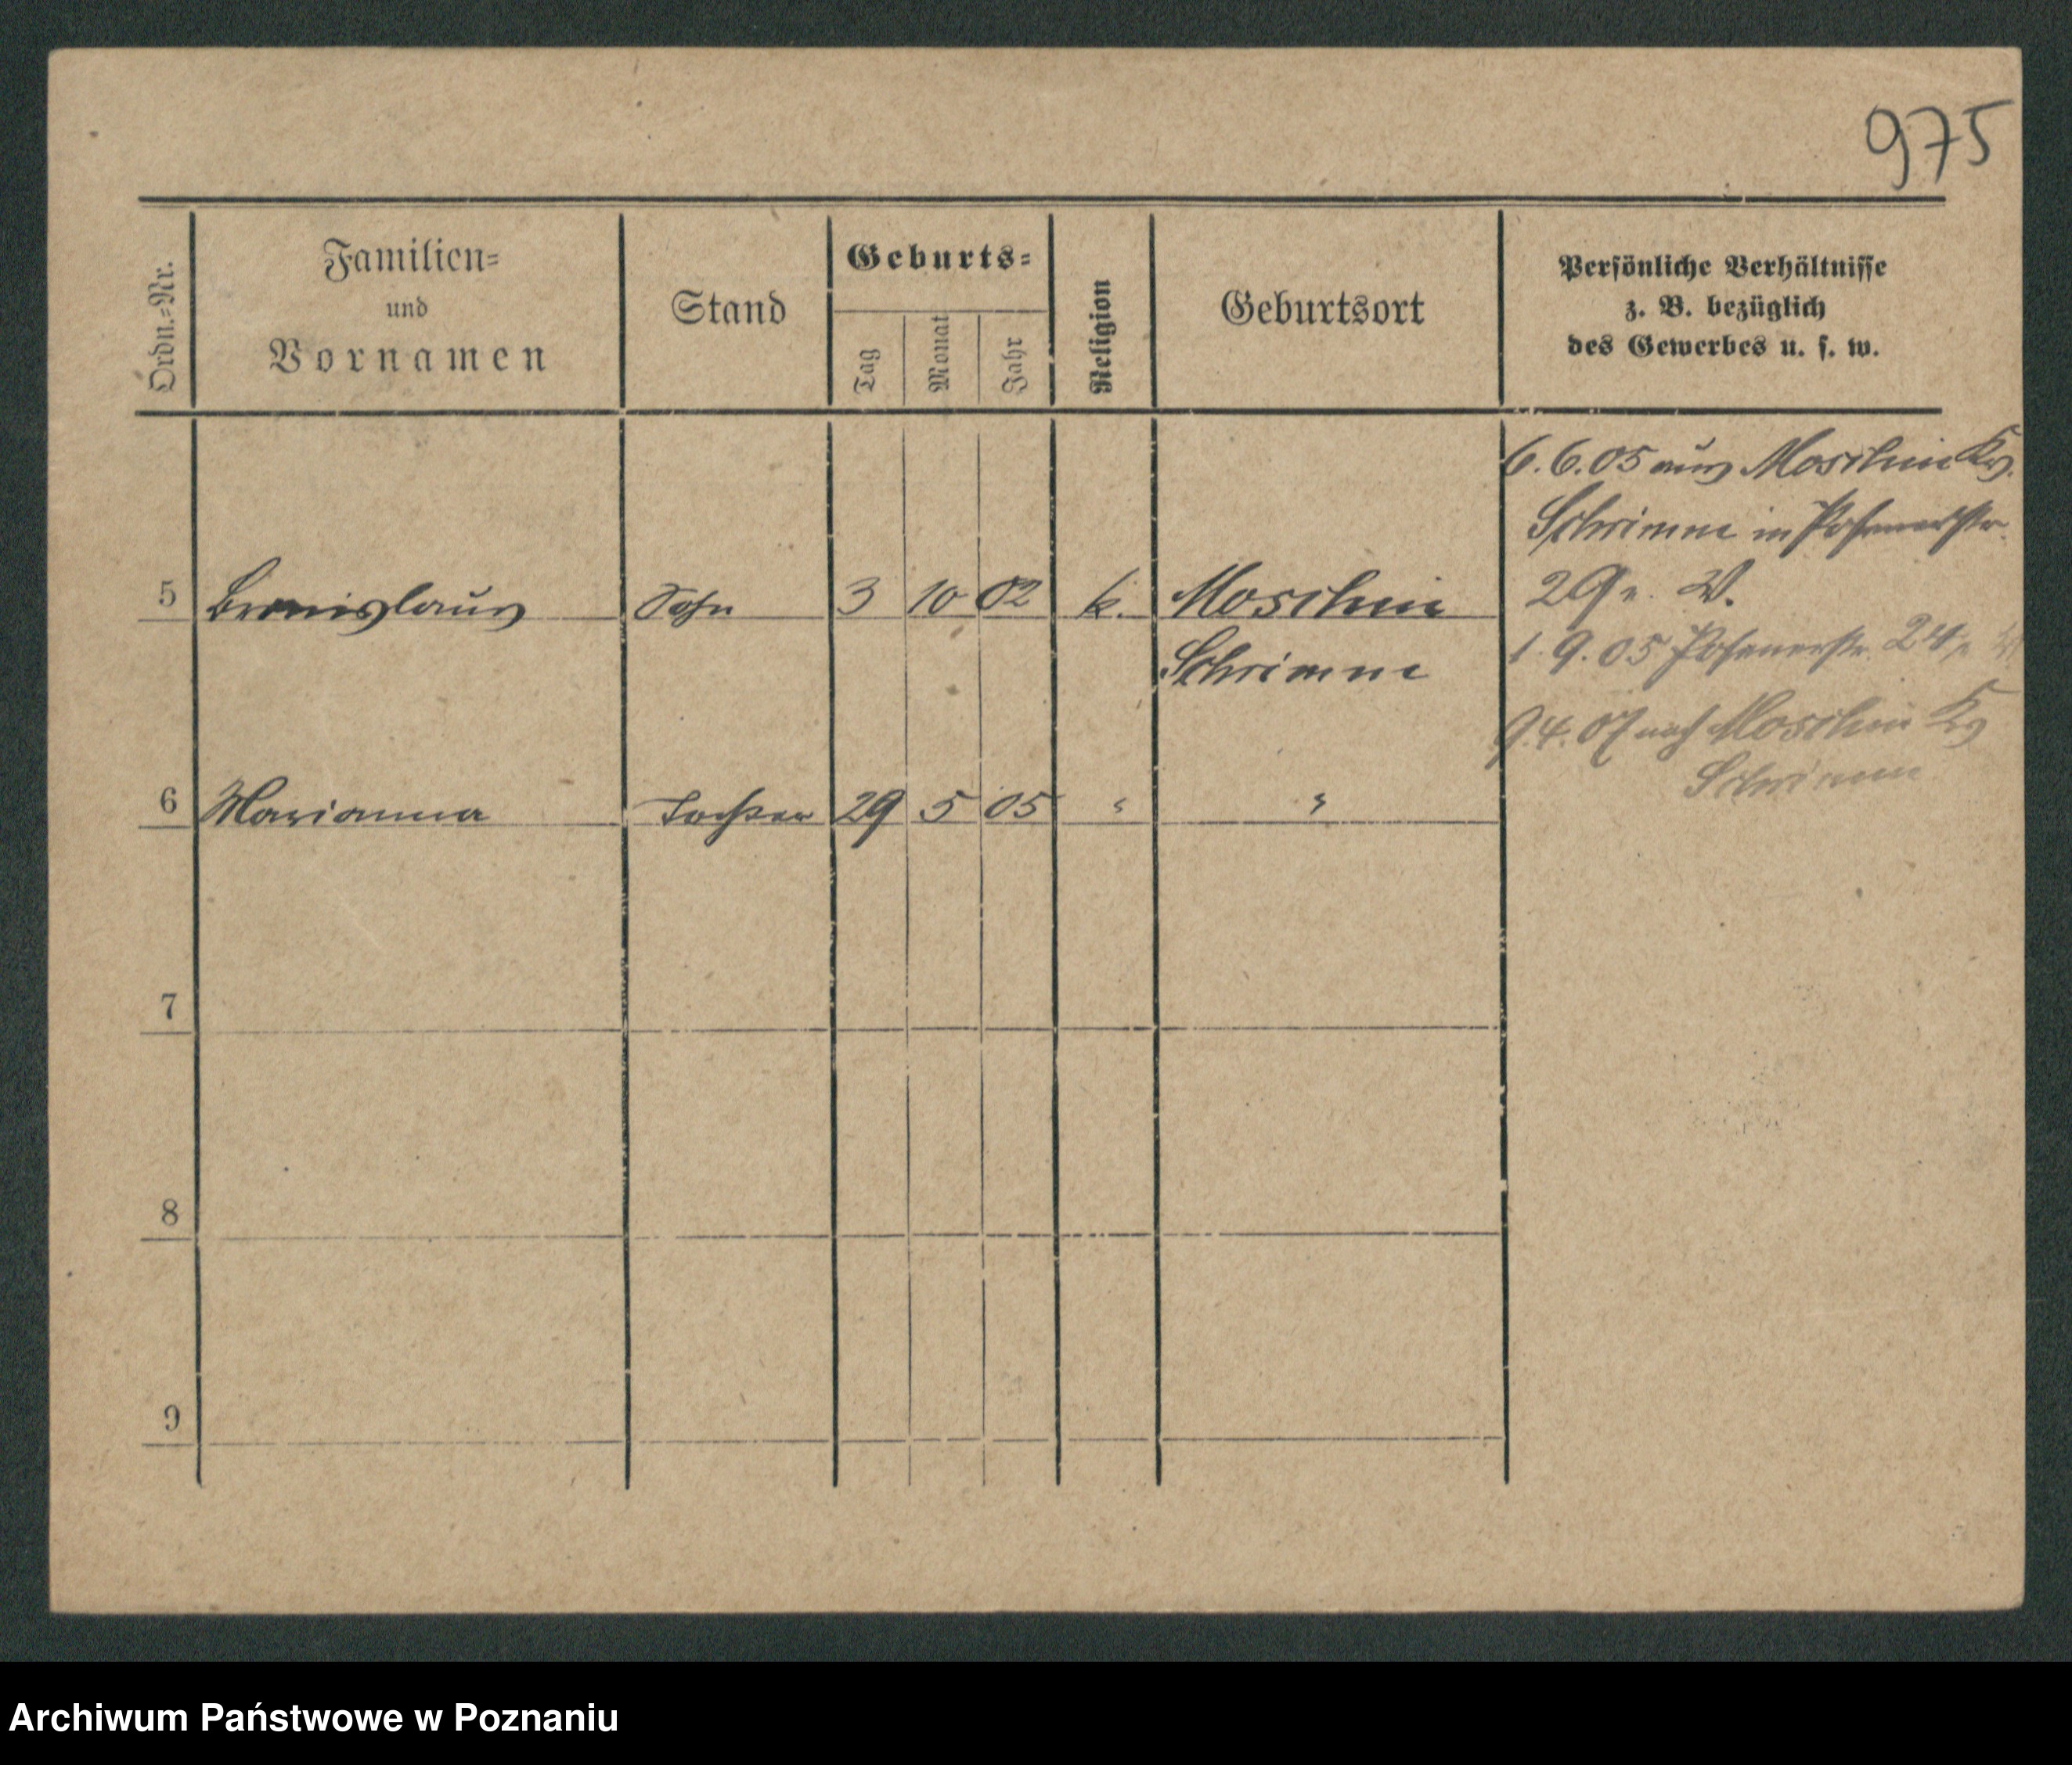 975
Ordn.=Nr.
Familien=
und
Vornamen
Stand
Geburts=
Tag
Monat
Jahr
Religion
Geburtsort
Persönliche Verhältnisse
z. B. bezüglich
des Gewerbes u. s. w.
6.6.05 aus Moschin Kr.
Schrimm in Posenerstr.
5 Bronislaus Sohn 3 10 02 k. Moschin
29 W.
Schrimm
1.9.05 Posenerstr. 24
9.4.07 nach Moschin Kr
Schrimm
6 Marianna Tochter 29 5 05 " "
7
8
9
Archiwum Państwowe w Poznaniu